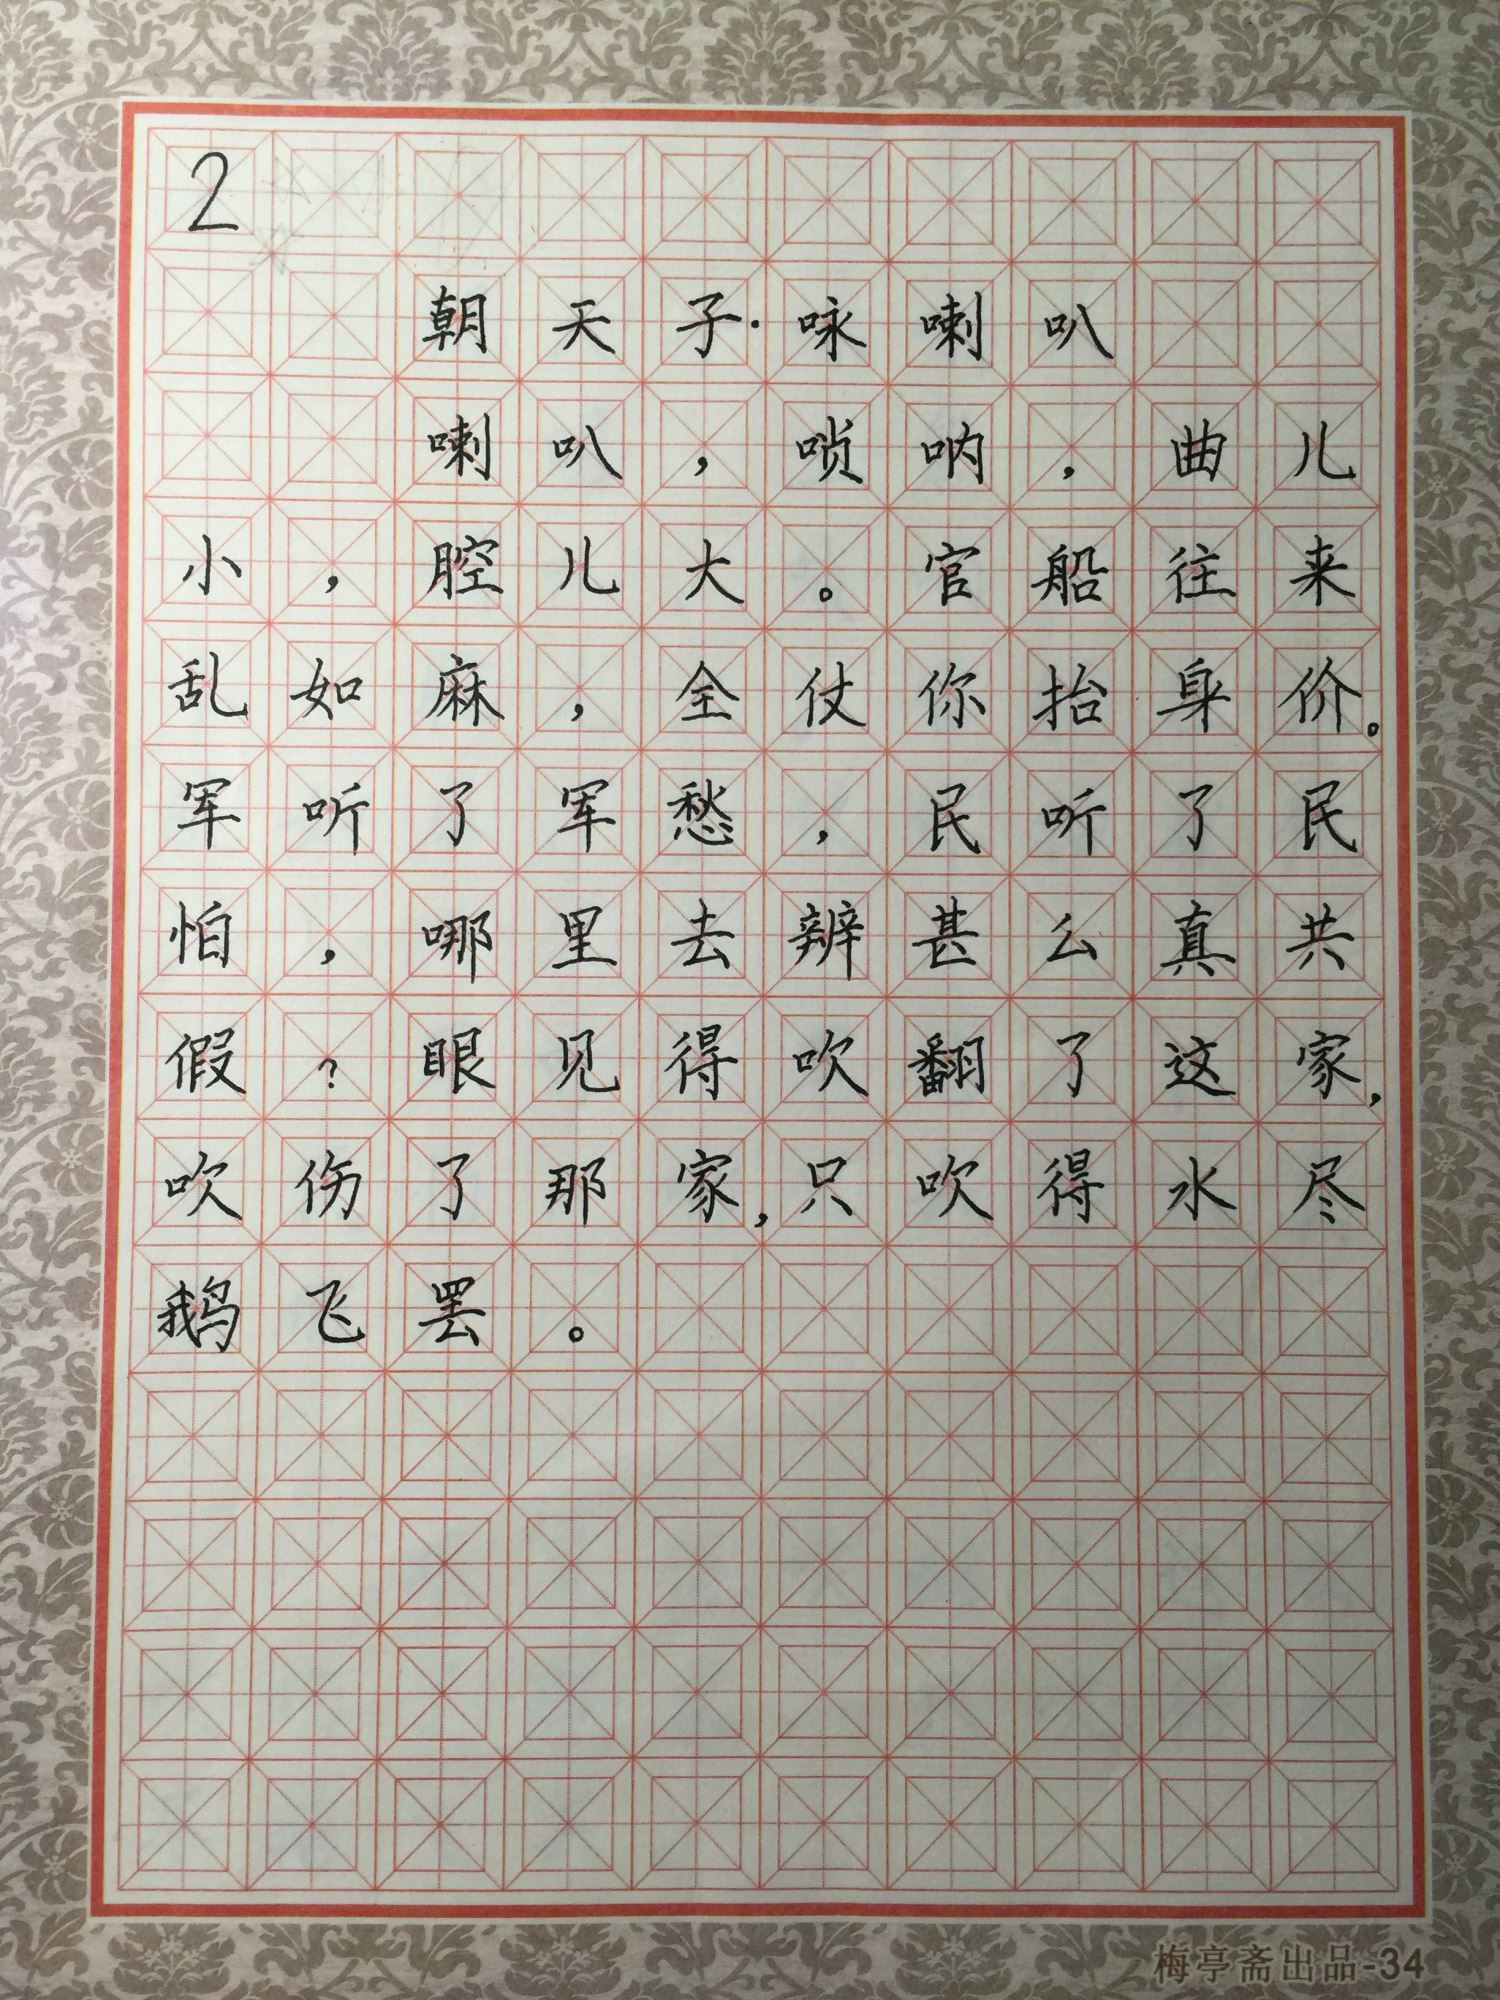 2
朝天子·咏喇叭
喇叭，唢呐，曲儿
小，腔儿大。官船往来
乱如麻，全仗你抬身价。
军听了军愁，民听了民
怕，哪里去辨甚么真共
假？眼见得吹翻了这家，
吹伤了那家，只吹得水尽
鹅飞罢。
梅亭斋出品-34